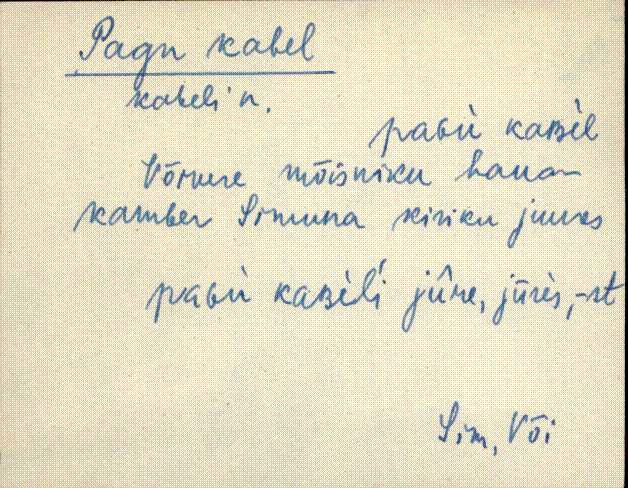 Pagu kabel
kabeli n.
paɢu kaʙèl
Võivere mõisniku haua-
kamber Simuna kiriku juures
paɢu kaʙèli jûre, jūrès, -st
Sim, Või